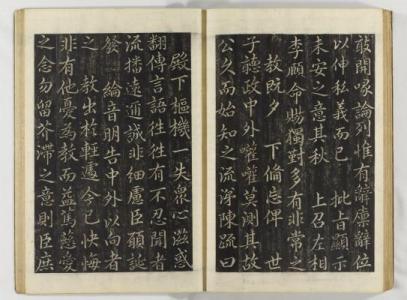 敢開喙論列惟有辭廩辭位
以伸私義而已 批旨顯示
未安之意其秋 上召左相
李頤命賜獨對多有非常之
教既夕 下倫忘俾 世
子聽政中外嚾嚾莫測其故
公久而始知之流涕陳疏曰
殿下樞機一失衆心滋惑
翻傳言語徃徃有不忍聞者
流播遠邇誠非細慮臣願誕
發 綸音明告中外以向者
之 教出於輕遽今已快悔
非有他憂為教而益篤慈愛
之念勿留芥滯之意則臣庶